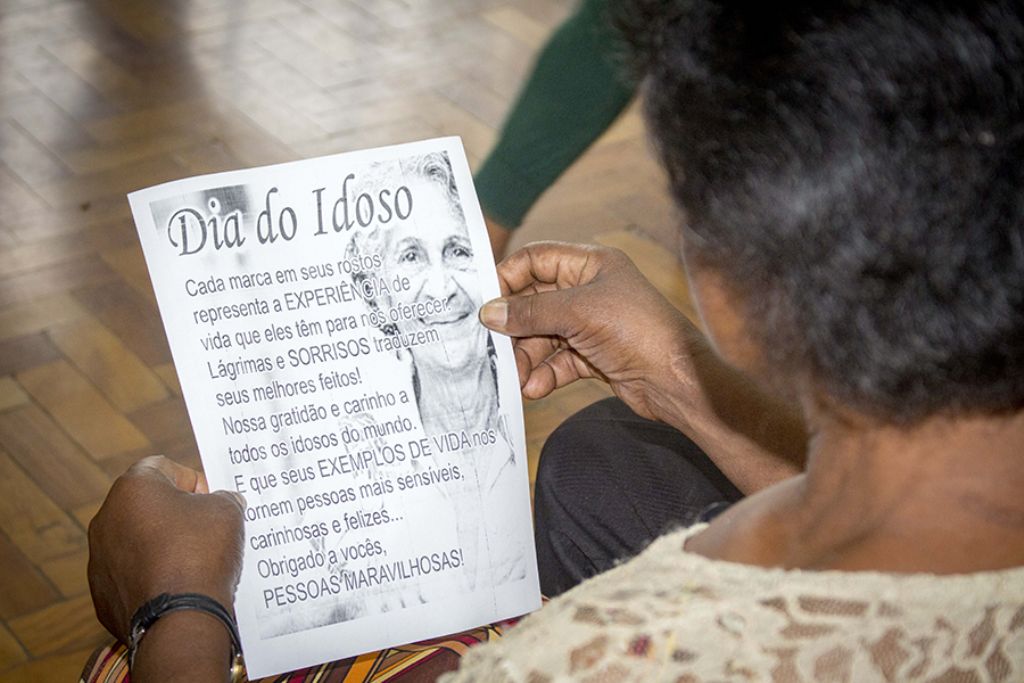 Dia do Idoso
Cada marca em seus rostos
representa a EXPERIÊNCIA de
vida que eles têm para nós oferecer.
Lágrimas e SORRISOS traduzem
seus melhores feitos!
Nossa gratidão e carinho a
todos os idosos do mundo.
E que seus EXEMPLOS DE VIDA nós
tornem pessoas mais sensíveis,
carinhosas e felizes...
Obrigado a vocês,
PESSOAS MARAVILHOSAS!